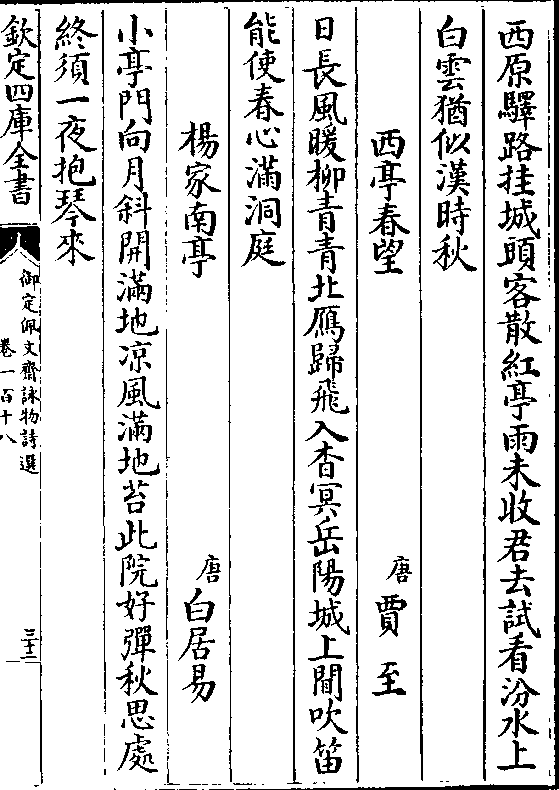 西原驛路挂城頭客散紅亭雨未收君去試看汾水上
白雲猶似漢時秋
西亭春望
唐 賈至
日長風暖柳青青北鴈歸飛入杳冥岳陽城上聞吹笛
能使春心滿洞庭
楊家南亭
唐 白居易
小亭門向月斜開滿地凉風滿地苔此院好彈秋思處
終須一夜抱琴來
欽定四庫全書
御定佩文齋詠物詩選
卷一百十八
三十二